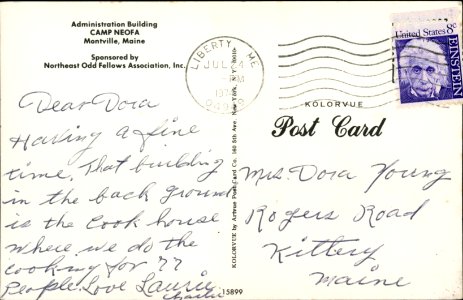 Administration Building
CAMP NEOFA
Montville, Maine
Sponsored by
Northeast Odd Fellows Association, Inc.
LIBERTY ME
JUL 24
United States 8c
EINSTEIN
KOLORVUE
Post Card
Dear Dora
Having a fine
time. That building
in the back ground
is the Cook house
Where we do the
cooking for 77
People. Love Laurie
Charlie
KOLORVUE by Artvue Post Card Co. 160 5th Ave. New York, N.Y. 10010
15899
Mrs. Dora Young
Rogers Road
Kittery
Maine